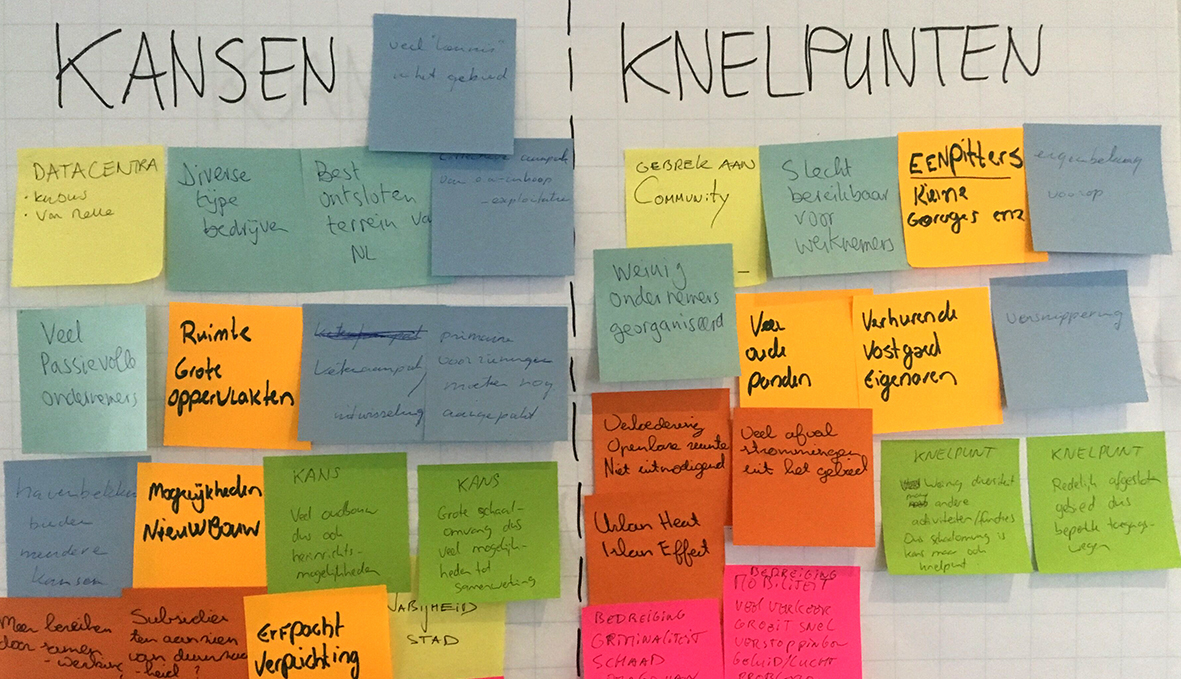 KANSEN
veel "kennis"
in het gebied
DATACENTRA
• KPN
• Van Nelle
Diverse
type
bedrijven
Best
ontsloten
terrein va
NL
Veel
Passievolle
ondernemers
Ruimte
Grote
oppervlakten
uitwisseling
primaire
voorzieningen
moeten nog
aangepakt
havenbekken
bieden
meerdere
kansen
Mogelijkheden
NIEUWBOUW
KANS
Veel oudbouw
dus ook
herinrichts-
mogelijkheden
KANS
Grote schaal-
omvang dus
veel mogelijk-
heden tot
samenwerking
Meer bereiken
door samen-
werking
Subsidies
ten aanzien
van duurzaam
-heid?
Erfpacht
verplichting
NABIJHEID
STAD
KNELPUNTEN
GEBREK AAN
COMMUNITY
Slecht
bereikbaar
voor
werknemers
EENPITTERS
Kleine
Garages enz
eigenbelang
voorop
Weinig
ondernemers
georganiseerd
Veel
oude
panden
Verhurende
Vastgoed
Eigenaren
versnippering
Verloedering
Openbare ruimte
Niet uitnodigend
Veel afval
stromen
uit het gebied
Urban Heat
Islan Effect
KNELPUNT
weinig diversiteit
andere
activiteiten/functies
Dus schaalomvang is
kans maar ook
knelpunt
KNELPUNT
Redelijk afgesloten
gebied dus
beperkte toegangs-
wegen
BEDREIGING
CRIMINALITEIT
SCHAAD
BEDREIGING
MOBILITEIT
VEEL VERKEER
GROEIT SNEL
VERSTOPPINGEN
GELUID/LUCHT